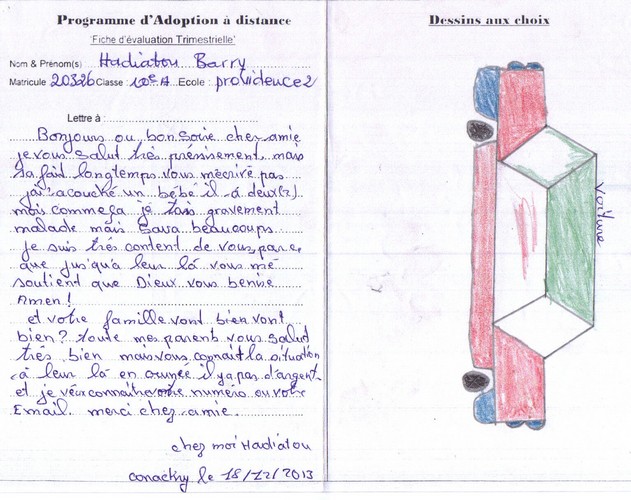 Programme d'Adoption à distance
'Fiche d'évaluation Trimestrielle'
Nom & Prénom(s) Hadiatou Barry
Matricule 20326 Classe : 10e A Ecole : providence 2
Lettre à :
Bonjours ou bon Soire cher amie
je vous salut très présisement mais
sa fait longtemps vous mécrivé pas
jai acouché un bébé il à deux(2)
mois comme ça je tais gravement
malade mais Sava beaucoups
je suis très content de vous, parce
que jusqu'à leur là vous me
soutient que Dieux vous benise
Amen!
et votre famille vont bien vont
bien? toute mes parent vous salut
très bien mais vous connait la situation
à leur là en il y a pas d'argent
et je veux connaitre votre numéro ou votre
Email. merci cher amie.
chez moi Hadiatou
conackry le 18/12/2013
Dessins aux choix
Voiture